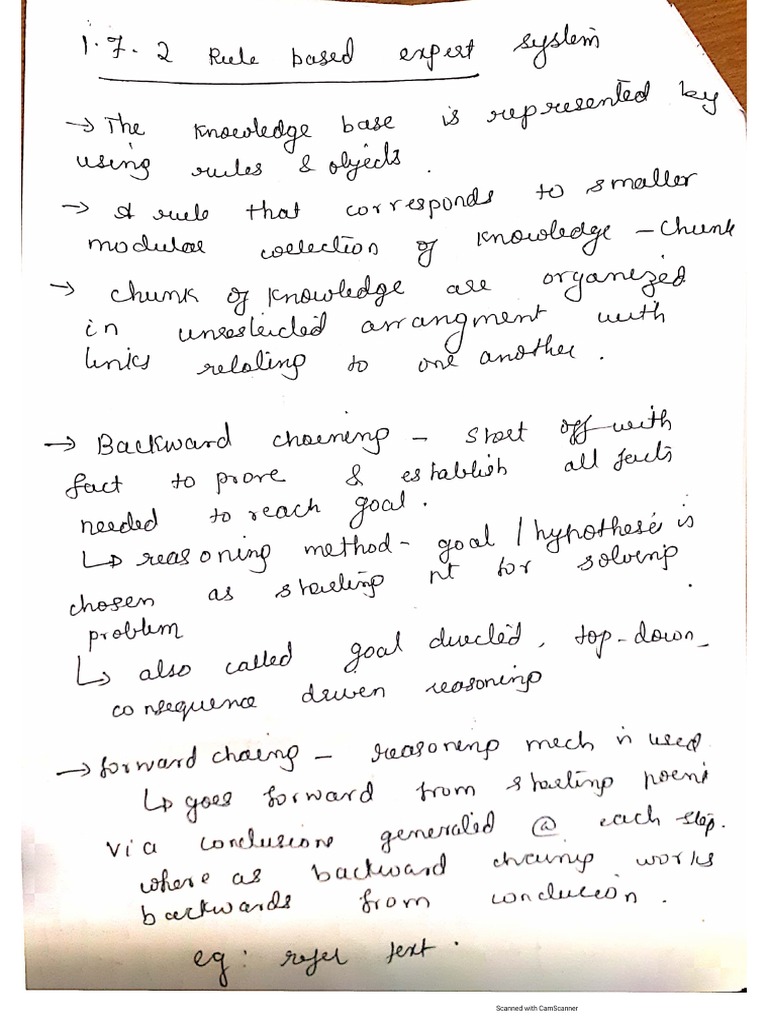 1.7.2 Rule based expert system
→ The knowledge base is represented by
using rules & objects.
→ A rule that corresponds to smaller
modular collection of knowledge - chunk
→ chunk of knowledge are organized
in unrestricted arrangment with
links relating to one another.
→ Backward chaining - start off with
fact to prove & establish all facts
needed to reach goal.
↳ reasoning method - goal / hypothesis is
chosen as starting pt for solving
problem.
↳ also called goal directed, top-down
consequence driven reasoning
→ forward chaing - reasoning mech is used
↳ goes forward from starting point
via conclusions generated @ each step.
where as backward chaing works
backwards from conclusion.
eg: refer text.
Scanned with CamScanner